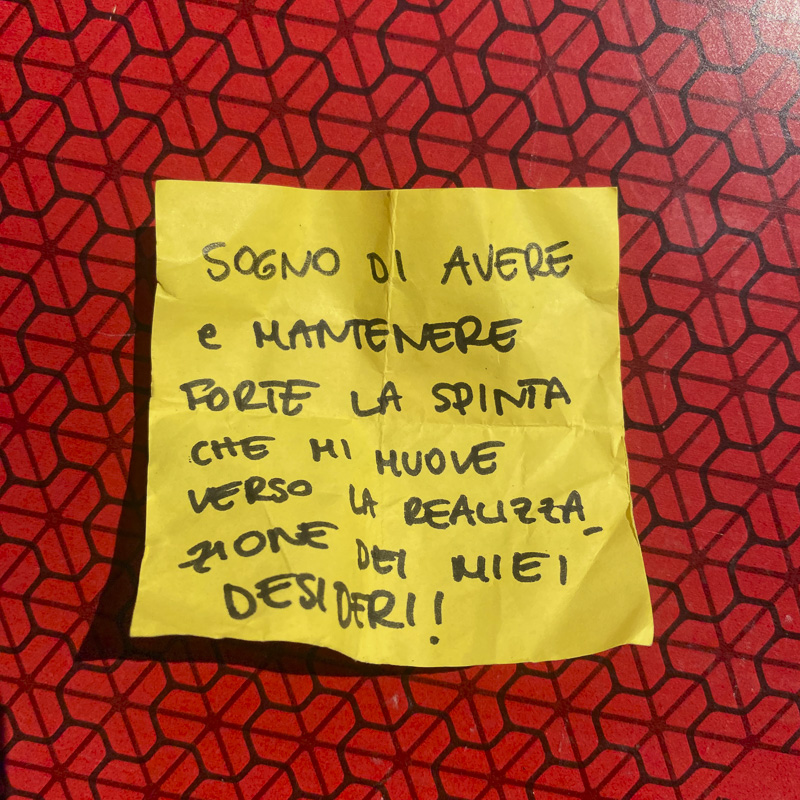 SOGNO DI AVERE
e MANTENERE
FORTE LA SPINTA
CHE MI MUOVE
VERSO LA REALIZZA_
ZIONE DEI MIEI
DESIDERI!